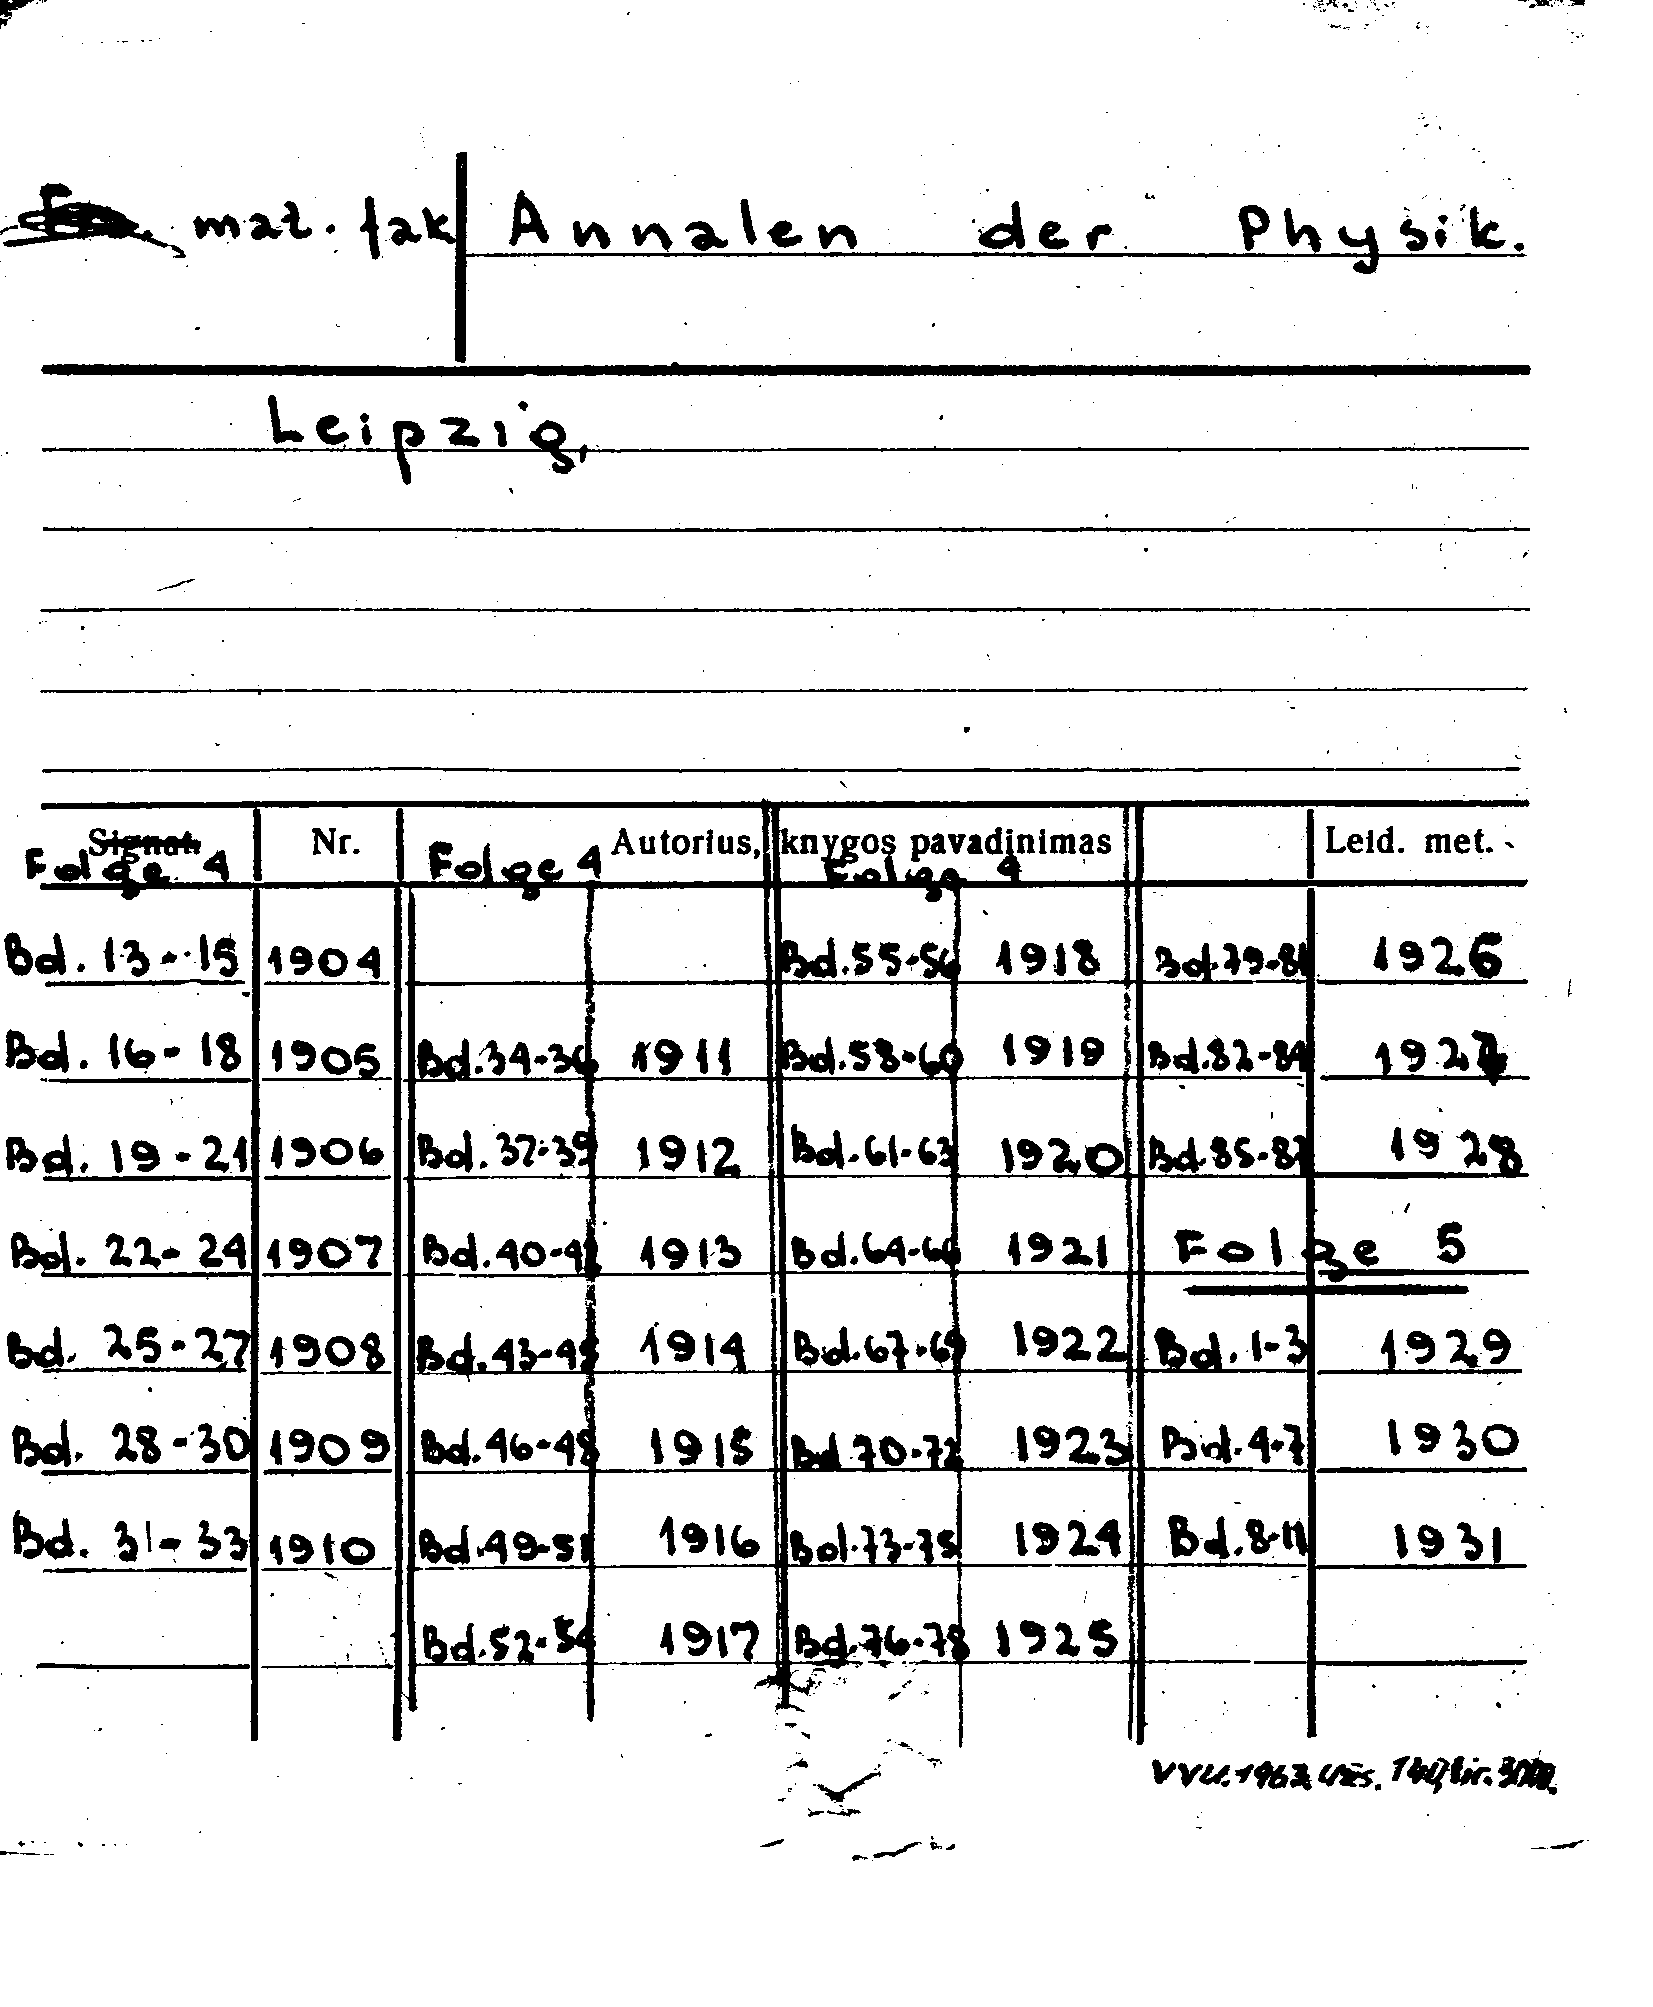 mat. fak Annalen der Physik.
Leipzig,
Signat. Nr. Autorius, knygos pavadinimas Leid. met.
Folge 4 Folge 4 Folge 4
Bd. 13-15 1904 Bd.55-56 1918 Bd.79-81 1926
Bd. 16-18 1905 Bd.34-36 1911 Bd.58-60 1919 Bd.82-84 1927
Bd. 19-21 1906 Bd.37-39 1912 Bd.61-63 1920 Bd.85-87 1928
Bd. 22-24 1907 Bd.40-42 1913 Bd.64-66 1921 Folge 5
Bd. 25-27 1908 Bd.43-45 1914 Bd.67-69 1922 Bd.1-3 1929
Bd. 28-30 1909 Bd.46-48 1915 Bd.70-72 1923 Bd.4-7 1930
Bd. 31-33 1910 Bd.49-51 1916 Bd.73-75 1924 Bd.8-11 1931
Bd.52-54 1917 Bd.76-78 1925
VVU.